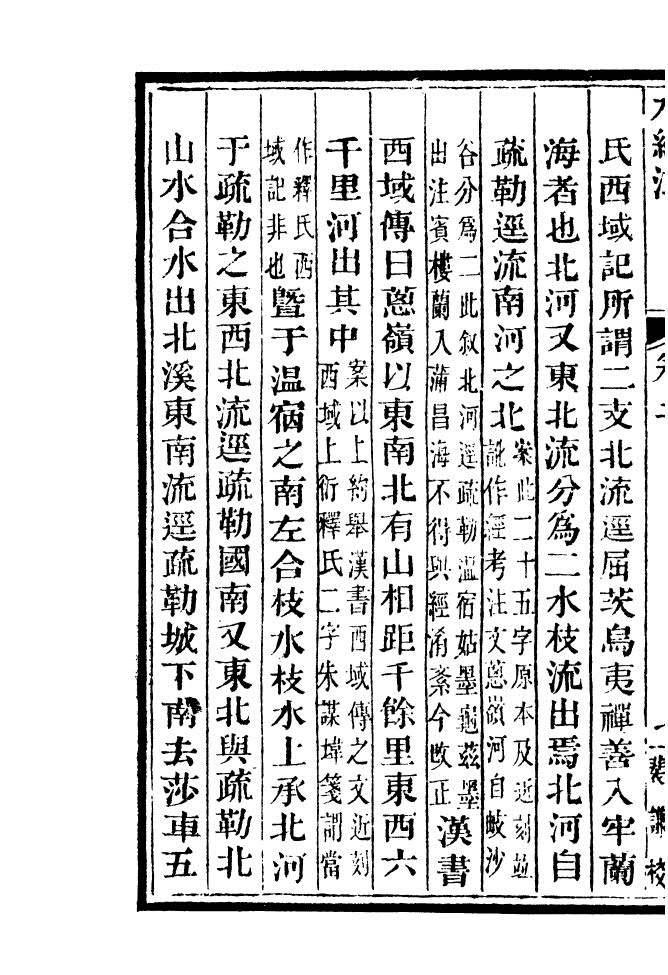 水經注
氏西域記所謂二支北流逕屈茨烏夷禪善入牢蘭
海者也北河又東北流分爲二水枝流出焉北河自
疏勒逕流南河之北案此二十五字原本及近刻並訛作經考注文蔥嶺河自岐沙
谷分爲二此叙北河逕疏勒溫宿姑墨龜茲墨出注賓樓蘭入蒲昌海不得與經淆紊今改正漢書
西域傳曰蔥嶺以東南北有山相距千餘里東西六
千里河出其中案以上約舉漢書西域傳之文近刻西域上衍釋氏二字朱謀㙔箋謂當
作釋氏西域記非也暨于温宿之南左合枝水枝水上承北河
于疏勒之東西北流逕疏勒國南又東北與疏勒北
山水合水出北溪東南流逕疏勒城下南去莎車五